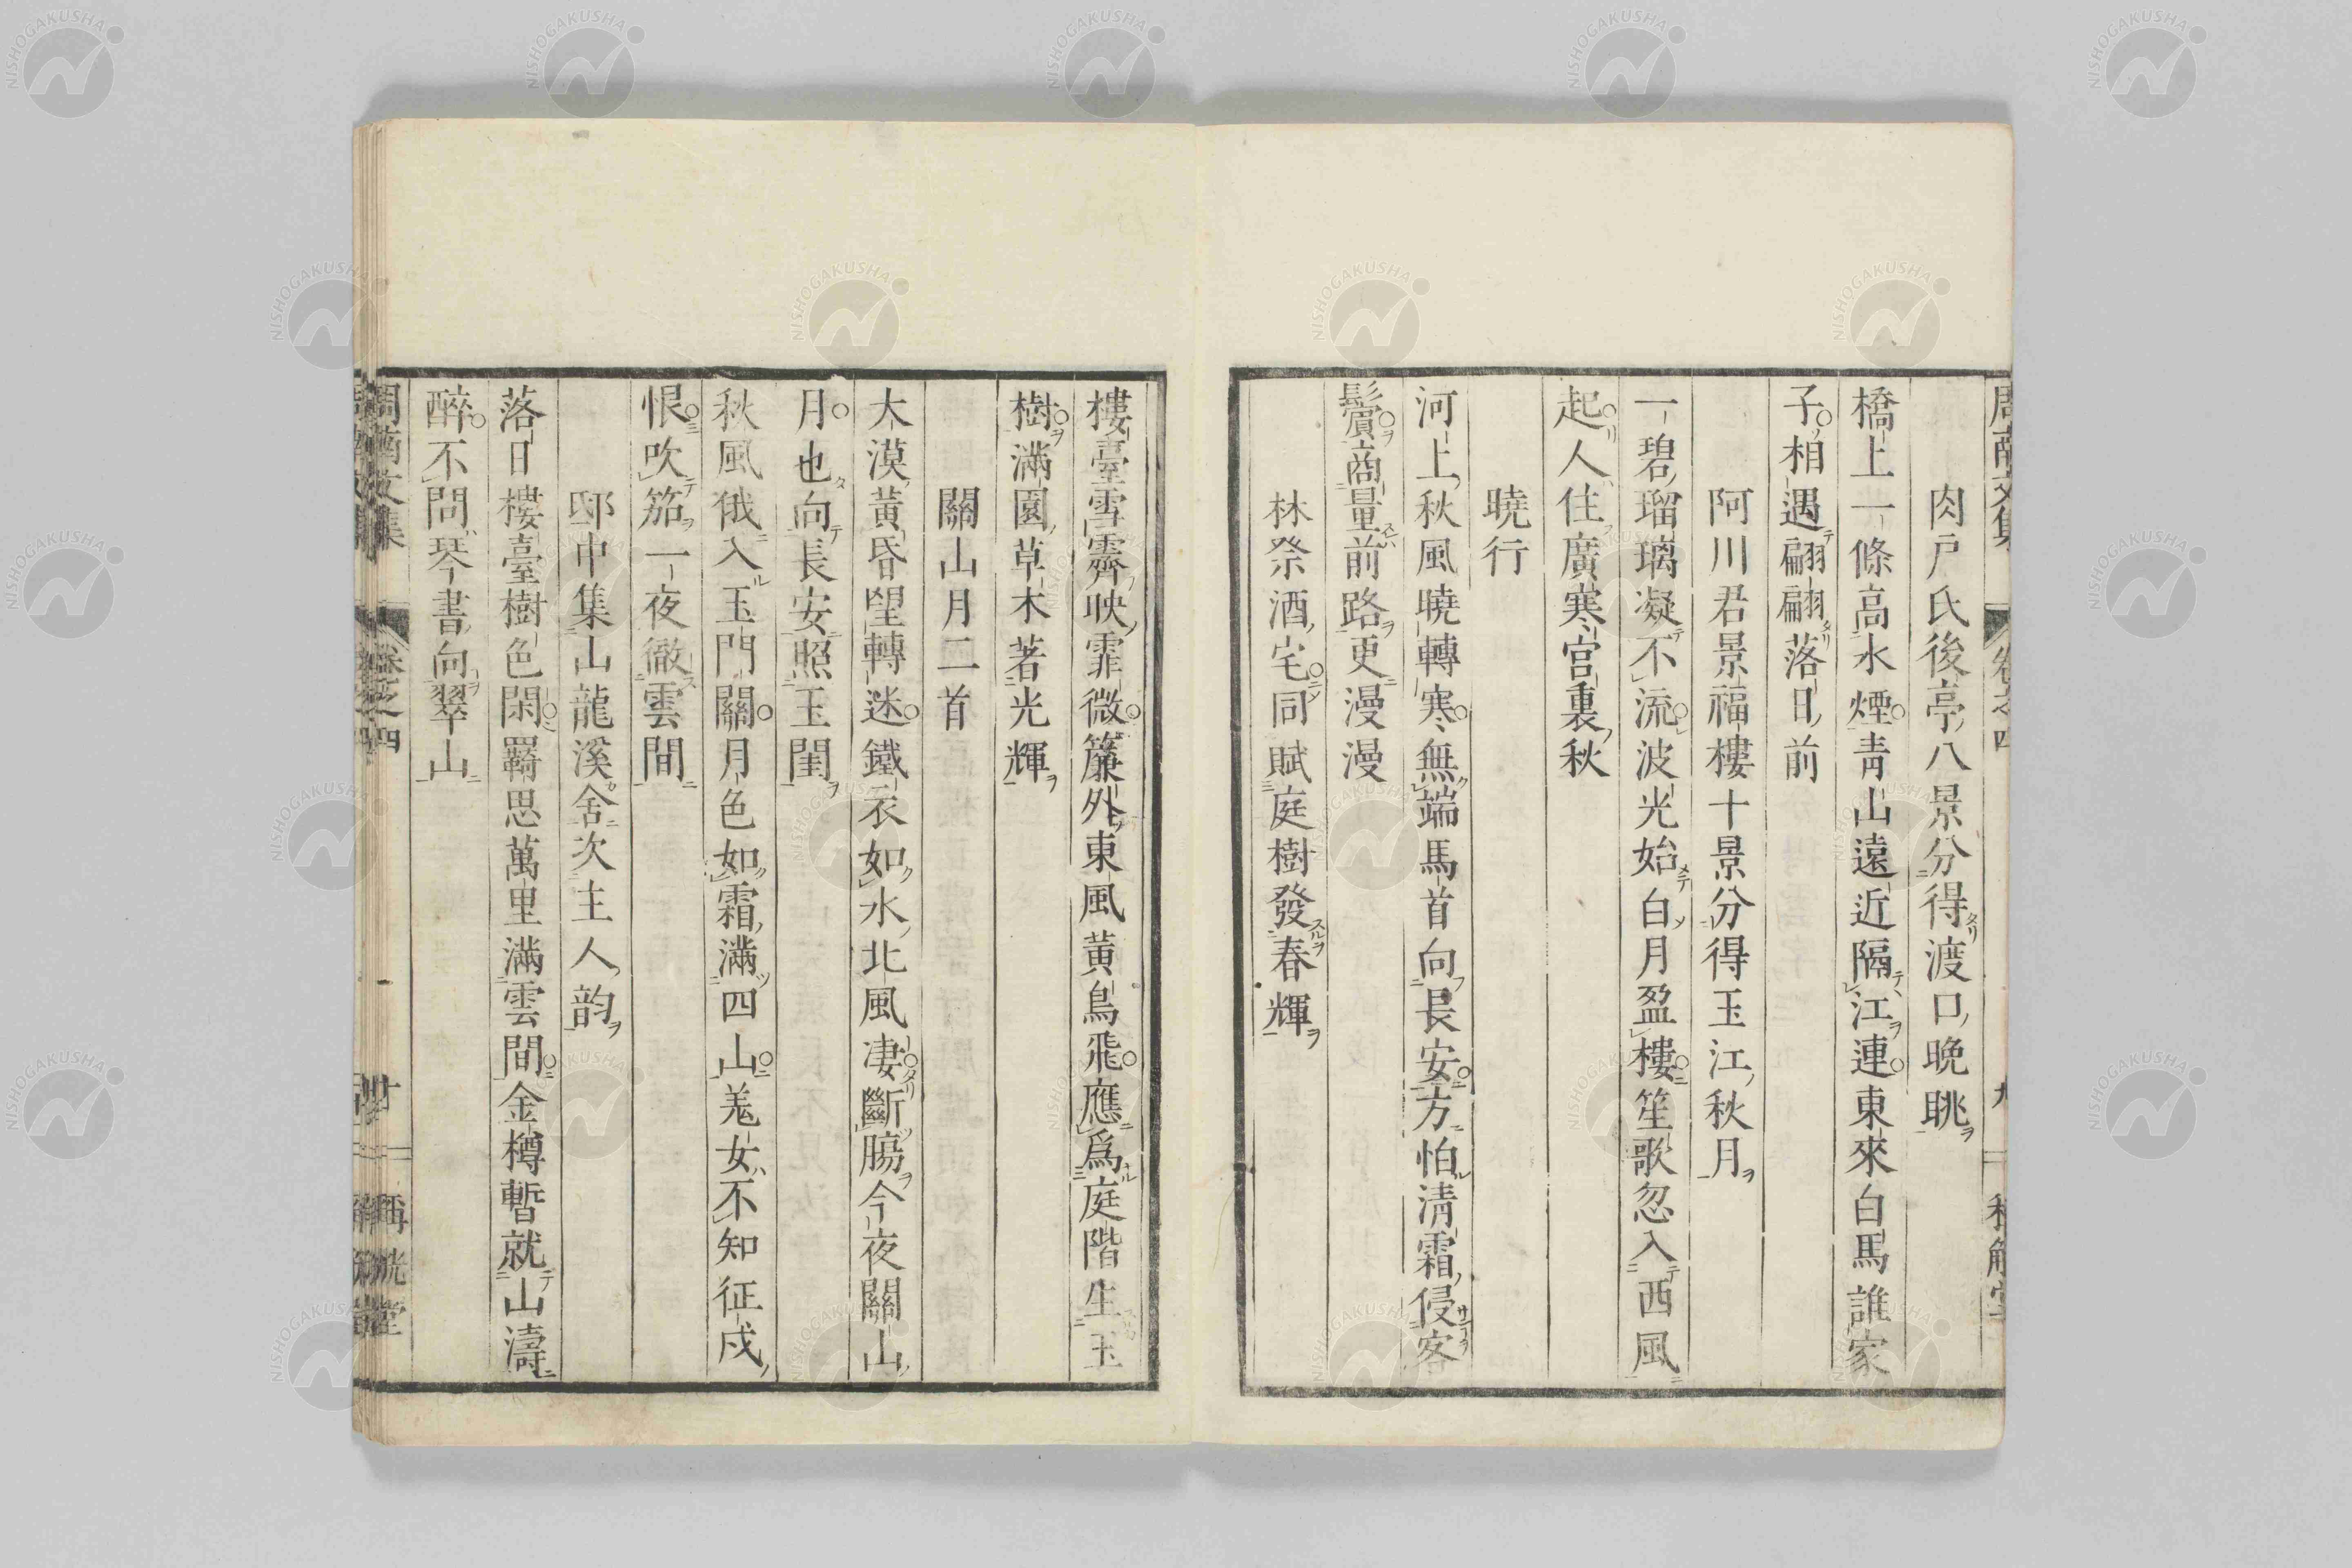 肉戸氏後亭八景分得渡口晩眺
橋上一條高水煙青山遠近隔江連東來白馬誰家
子相遇翩翩落日前
阿川君景福樓十景分得玉江秋月
一碧瑠璃凝不流波光始白月盈樓笙歌忽入西風
起人住廣寒宮裏秋
曉行
河上秋風曉轉寒無端馬首向長安方怕清霜侵客
鬢商量前路更漫漫
林祭酒宅同賦庭樹發春輝
樓臺雪霽映霏微簾外東風黄鳥飛應爲庭階生玉
樹滿園草木著光輝
關山月二首
大漠黄昏望轉迷鐵衣如水北風凄斷腸今夜關山
月也向長安照玉閨
秋風俄入玉門關月色如霜滿四山羗女不知征戍
恨吹笳一夜徹雲間
邸中集山龍溪舍次主人韵
落日樓臺樹色閑羇思萬里滿雲間金樽暫就山濤
醉不問琴書向翠山
周南文集 卷之四 廿 稱觥堂
NISHOGAKUSHA